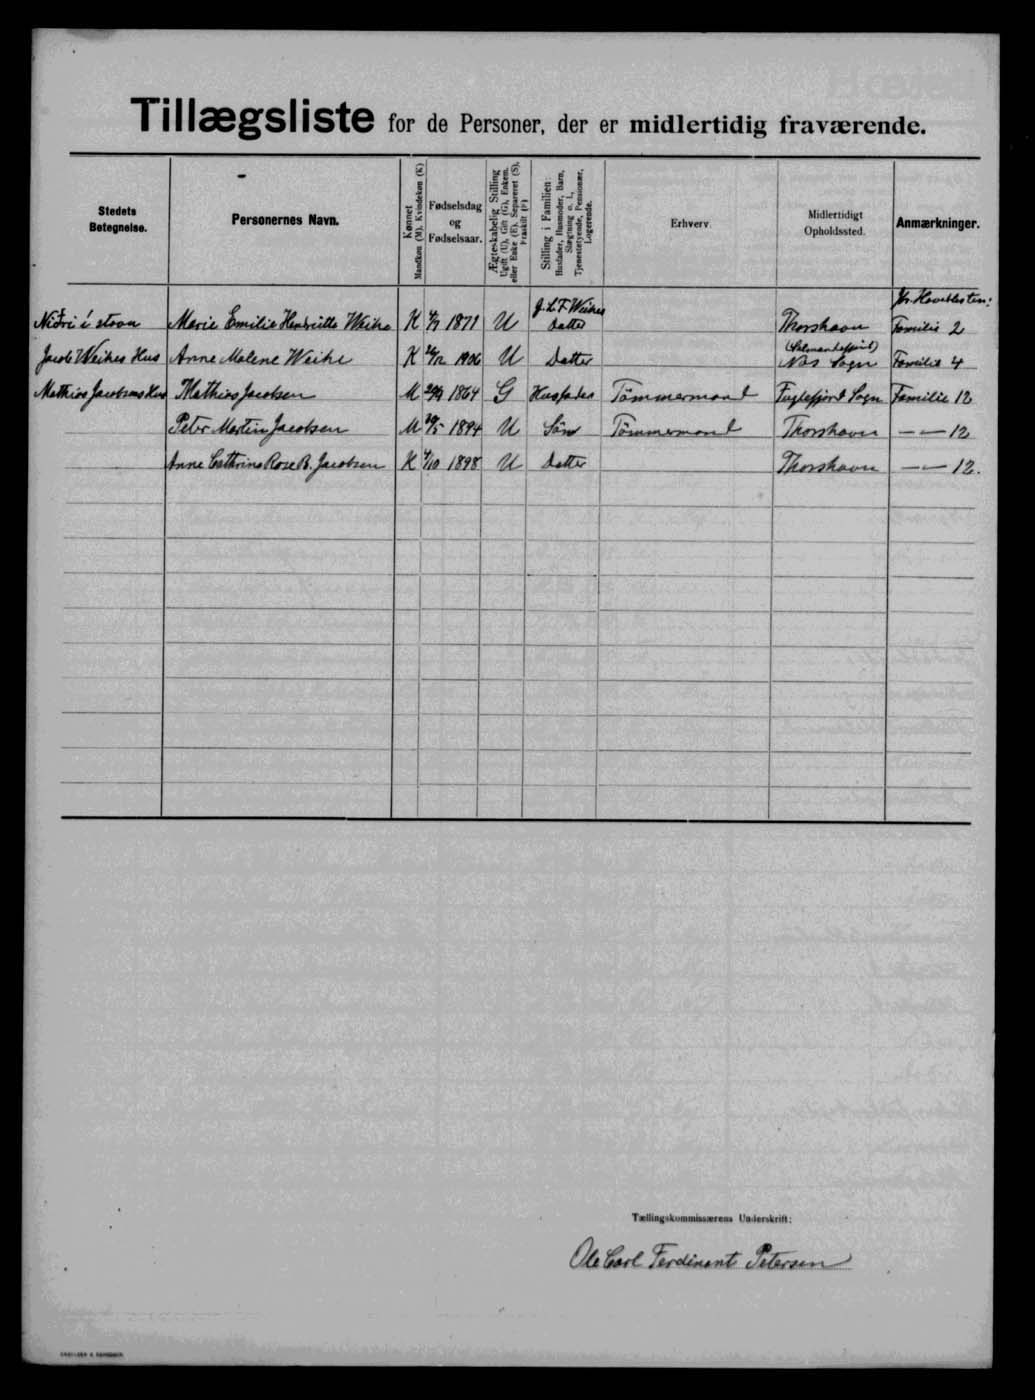 Tillægsliste for de Personer, der er midlertidig fraværende.
Stedets Betegnelse.
Personernes Navn.
Kønnet
Mandkøn (M). Kvindekøn (K)
Fødselsdag og Fødselsaar.
Ægteskabelig Stilling
Ugift (U), Gift (G), Enkem. eller Enke (E), Separeret (S), Fraskilt (F)
Stilling i Familien:
Husfader, Husmoder, Barn, Slægtning o. l., Tjenestetyende, Pensionær, Logerende.
Erhverv.
Midlertidigt Opholdssted.
Anmærkninger.
J. L. F. Weihes Hovedlisten:
Niðri í stovu Marie Emilie Hendritte Weihe K 1871 U Datter Thorshavn Familie 2
Jacob Weihes Hus Anne Malene Weihe K 1906 U Datter Næs Sogn Familie 4
Mathias Jacobsens Hus Mathias Jacobsen M 1864 G Husfader Tömmermand Fuglefjord Sogn Familie 12
Peter Martin Jacobsen M 1894 U Sön Tömmermand Thorshavn — „ — 12
Anne Cathrine Rose B. Jacobsen K 4/10 1898 U Datter Thorshavn — „ — 12.
Tællingskommissærens Underskrift:
Ole Carl Ferdinant Petersen